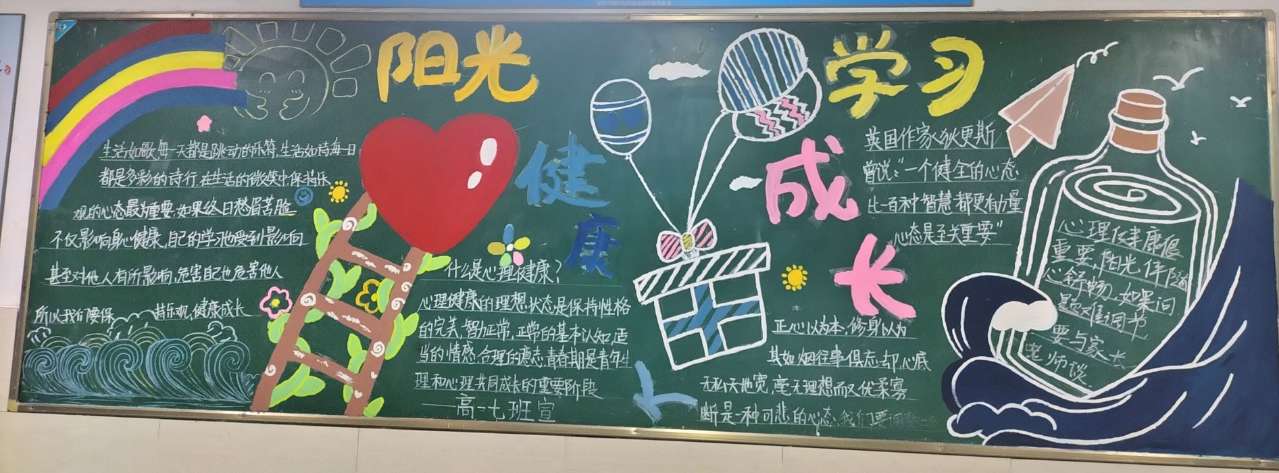 阳光
健康
学习
成长
生活如歌,每一天都是跳动的乐符,生活如诗,每一日
都是多彩的诗行,在生活的微笑中保持乐
观的心态最为重要,如果终日愁眉苦脸
不仅影响身心健康,自己的学习也受到影响
甚至对他人有所影响,危害自己也危害他人
所以我们要保 持乐观,健康成长
什么是心理健康?
心理健康的理想状态是保持性格
的完美、智力正常、正常的基本认知,适
当的情感,合理的态,青春期是青年生
理和心理共同成长的重要阶段
——高一七班宣
英国作家狄更斯
曾说:“一个健全的心态
比一百种智慧都更有力量
心态是至关重要”
正心以为本,修身以为
基,如烟往事俱忘却,心底
无私天地宽,毫无理想而又优柔寡
断是一种可悲的心态,我们要
心理健康很
重要,阳光伴随
心舒畅,如果问
题难调节
要与家长
老师谈